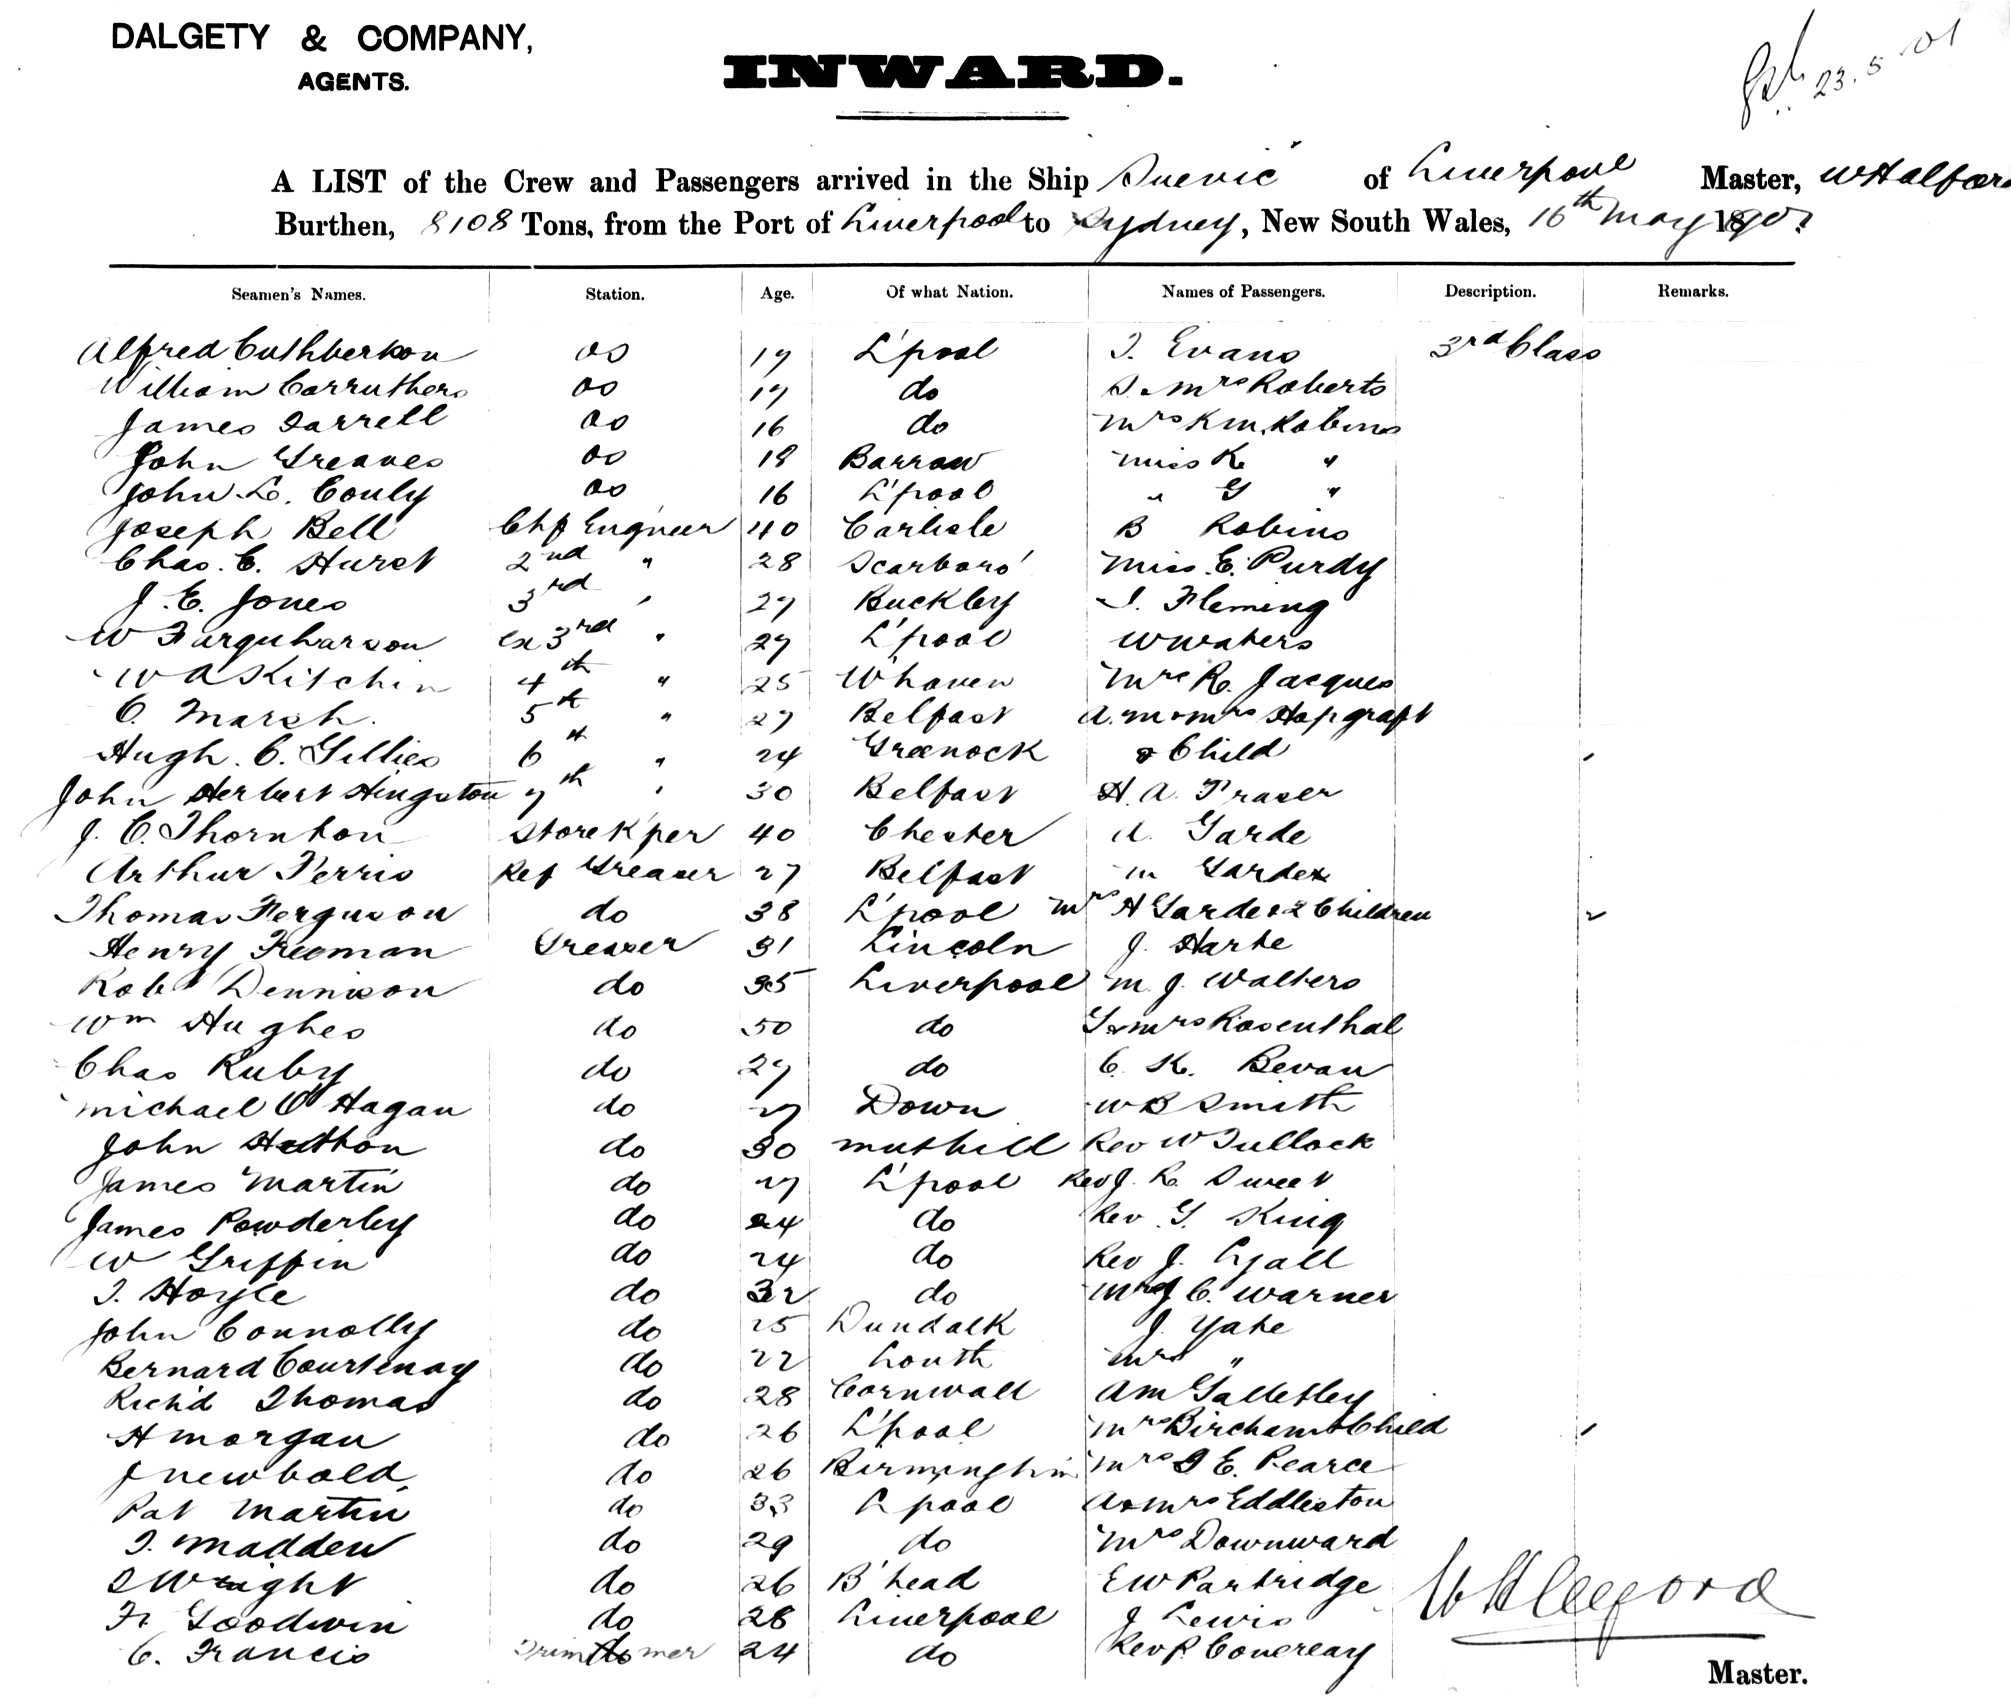 DALGETY & COMPANY,
AGENTS.
INWARD.
23.5.01
A LIST of the Crew and Passengers arrived in the Ship Suevic of Liverpool Master, W Halford
Burthen, 8108 Tons, from the Port of Liverpool to Sydney, New South Wales, 16th May 1901
Seamen's Names. Station. Age. Of what Nation. Names of Passengers. Description. Remarks.
Alfred Cuthbertson OS 17 L'pool T. Evans 3rd Class
William Carruthers OS 17 do S. & Mrs Roberts
James Farrell OS 16 do Mrs K M Robins
John Greaves OS 18 Barrow Miss K "
John L. Couly OS 16 L'pool " G "
Joseph Bell Chf Engneer 40 Carlisle B Robins
Chas. C. Hurst 2nd " 28 Scarboro' Miss E. Purdy
J. E. Jones 3rd " 27 Buckley I. Fleming
W Farquharson Ex 3rd " 27 L'pool W Waters
W A Kitchin 4th " 25 W'haven Mrs R. Jacques
C. Marsh. 5th " 27 Belfast A. M & Mrs Hopgraft
Hugh. C. Gillies 6th " 24 Greenock & Child
John Herbert Hingston 7th " 30 Belfast H. A. Fraser
J. C. Thornton Storek'per 40 Chester A. Garde
Arthur Ferris Ref Greaser 27 Belfast M Garde
Thomas Ferguson do 38 L'pool Mrs H Garde & 2 Children
Henry Freeman Greaser 31 Lincoln J. Harte
Robt Dennison do 35 Liverpool M. J. Walters
Wm Hughes do 50 do G & Mrs Rosenthal
Chas Ruby do 27 do C. K. Bevan
Michael O'Hagan do 27 Down W B Smith
John Hutton do 30 Muthill Rev W Tullock
James Martin do 27 L'pool Rev J. R. Sweet
James Powderley do 24 do Rev. G. King
W Griffin do 24 do Rev J. Lyall
T. Hoyle do 32 do C. Warner
John Connolly do 25 Dundalk J. Yate
Bernard Courtenay do 22 Louth Mrs "
Rich'd Thomas do 28 Cornwall A M Galletley
H Morgan do 26 L'pool Mrs Bircham & Child
J Newbold do 26 Birmingham Mrs E. Pearce
Pat Martin do 33 L'pool A & Mrs Eddleston
T. Madden do 29 do Mrs Downward
S Wright do 26 B'head E W Partridge
Fr Goodwin do 28 Liverpool J Lewis
C. Francis Trimmer 24 do Rev P. Convreay
W Halford
Master.